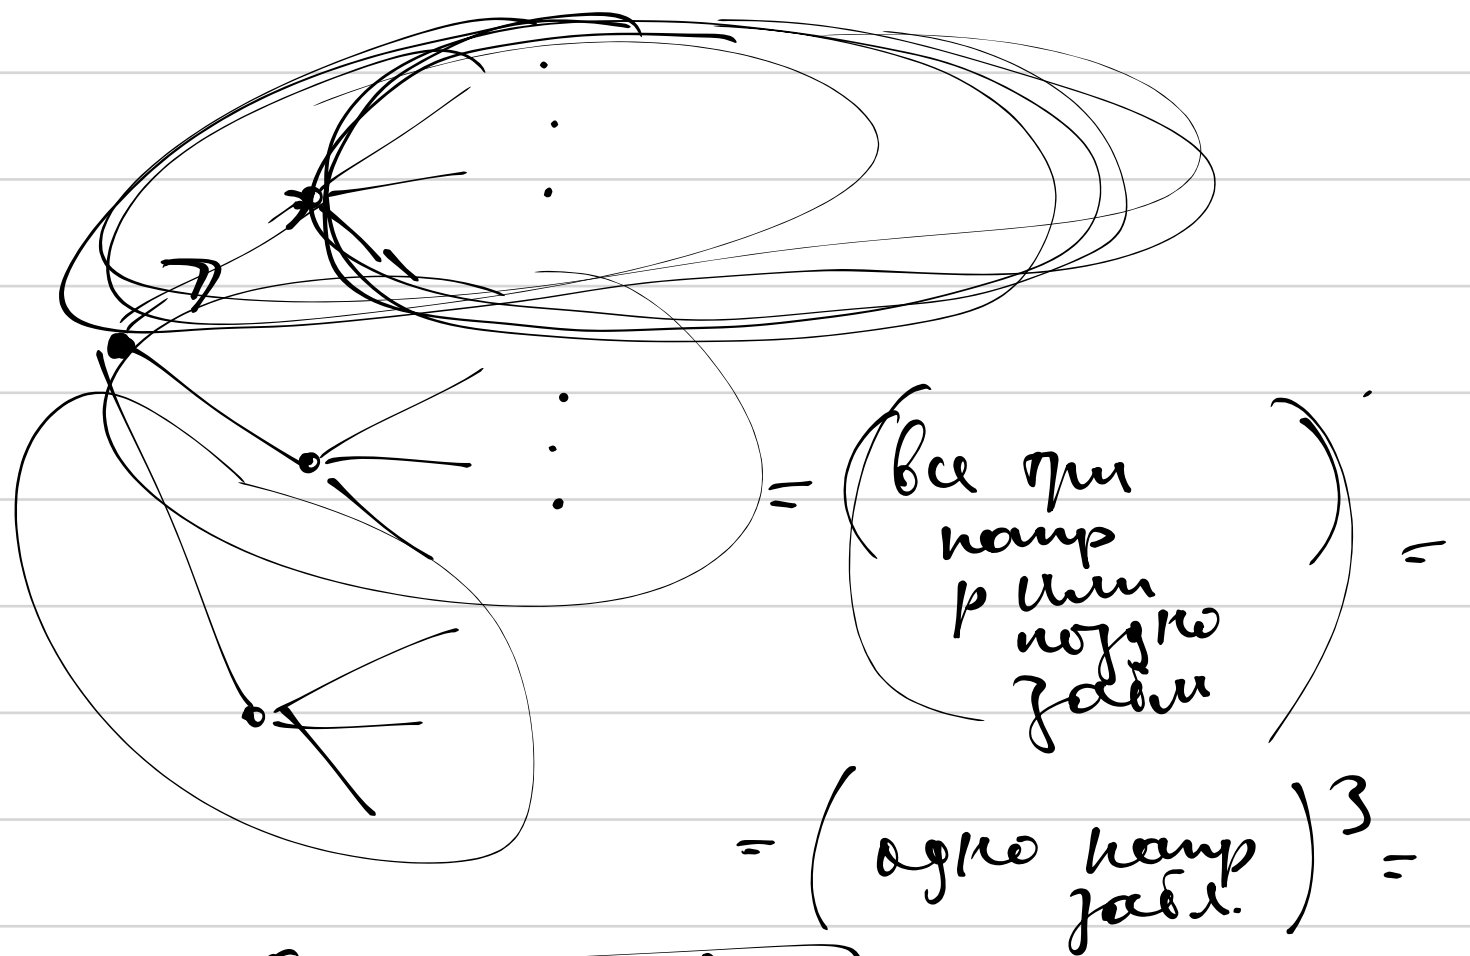 = (все три
напр
р или
поздно
забл) =
= (одно напр
забл.)³ =